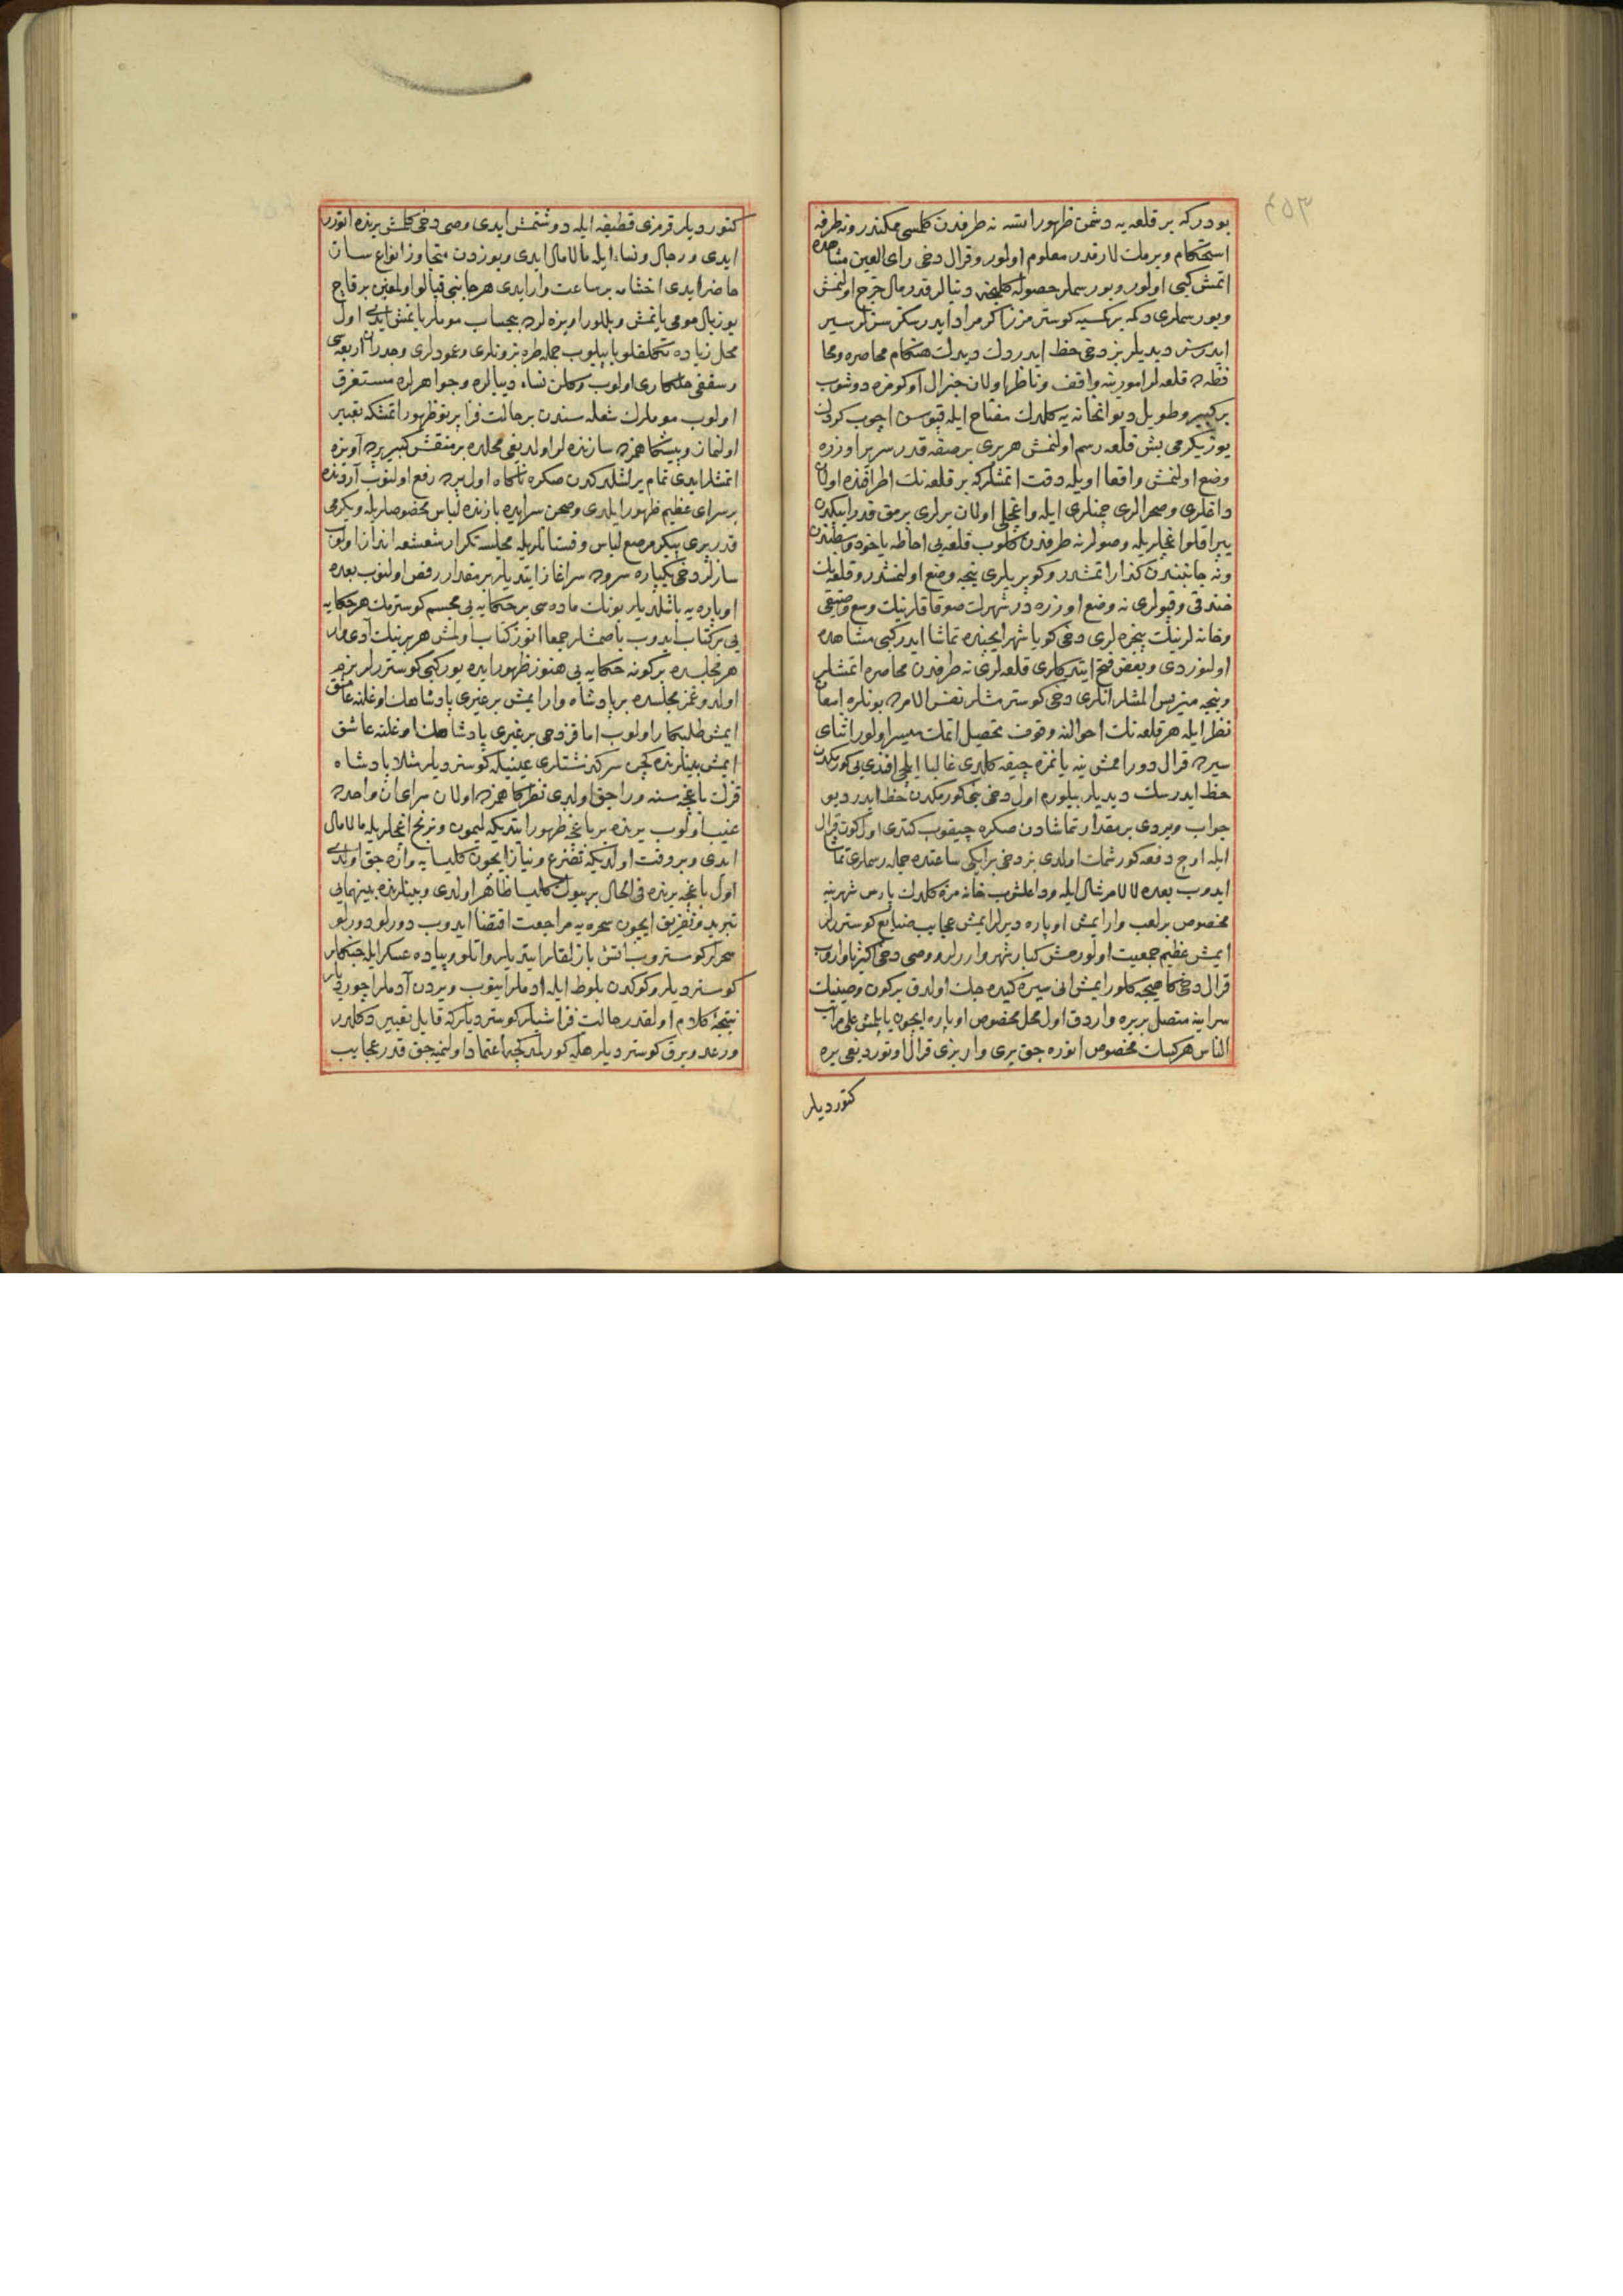 ٣٥٢
بودركه بر قلعه يه دشمن ظهور ايتسه نه طرفدن كلمسى ممكندر و نه طرفه
استحكام ويرملك لازمدر معلوم اولور و قرال دخى رأى العين مشاهده
اتمش كبى اولور و بو رسملر حصوله كلنجه دنيالر قدر مال خرج اولنمش
و بو رسملرى دكمه بر كمسيه كوسترمزز اكر مراد ايدرسكز سزلر سير
ايدرسز ديديلر بز دخى حظ ايدردك ديدك هنكام محاصره و محا
فظه ده قلعه لر امورينه واقف و ناظر اولان جنرال او كومزه دوشوب
بر كبير و طويل ديوانخانه يه كلدك مفتاح ايله قپوسن اچوب كوردك
يوز يكرمى بش قلعه رسم اولنمش هر برى بر صفه قدر سرير اوزره
وضع اولنمش واقعا اويله دقت اتمشلركه بر قلعه نك اطرافنده اولان
داغلرى و صحرالرى چمنلرى ايله و اغجلى اولان يرلرى برمق قدر ايپكدن
يپراقلو اغجلريله و صولر نه طرفدن كلوب قلعه يى احاطه ياخود وسطندن
و نه جانبندن كذار اتمشدر و كوپريلرى نيجه وضع اولنمشدر و قلعه نك
خندقى و قپولرى نه وضع اوزره در شهرك صوقاقلرينك وسع و ضيقى
و خانه لرينك پنجره لرى دخى كويا شهر ايچنده تماشا ايدر كبى مشاهده
اولنوردى و بعض فتح ايتدكلرى قلعه لرى نه طرفدن محاصره اتمشلر
و نيجه متريس المشلر انلرى دخى كوسترمشلر نفس الامرده بونلره امعان
نظر ايله هر قلعه نك احوالنه وقوف تحصيل اتمك ميسر اولور اثناى
سيرده قرال دورامش ينه يانمزه چيقه كلدى غالبا ايلچى افندى بى كورمكدن
حظ ايدرسك ديديلر بيلورم اول دخى بنى كورمكدن حظ ايدر ديو
جواب ويردى بر مقدار تماشادن صكره چيقوب كتدى اول كون قرال
ايله اوچ دفعه كورشمك اولدى بز دخى بر ايكى ساعتده جمله رسملرى تماشا
ايدوب بعده لالا مرشال ايله وداعلشوب خانه مزه كلدك پارس شهرينه
مخصوص بر لعب وار ايمش اوپاره ديرلر ايمش عجايب صنايع كوستررلر
ايمش عظيم جمعيت اولورمش كبار شهر واررلر و وصى دخى اكثريا واروب
قرال دخى كاهيجه كلور ايمش انى سيره كيده جك اولدق بر كون وصينك
سراينه متصل بر يره واردق اول محل مخصوص اوپاره ايچون يابلمش على مراتب
الناس هر كسك مخصوص اتوره جق يرى وار بزى قرال اوتورديغى يره
كتورديلر
كتورديلر قرمزى قطيفه ايله دوشتمش ايدى وصى دخى كلمش يرنده اتورر
ايدى و رجال و نساء ايله مالامال ايدى و يوزدن متجاوز انواع ساز
حاضر ايدى اخشامه بر ساعت وار ايدى هر جانبى قپالو اولمغين بر قاچ
يوز بال مومى يانمش و بللور اويزه لرده بيحساب موملر يانمش ايدى اول
محل زياده تكلفلو ياپيلوب جمله طرابزونلرى و عمودلرى و جدران اربعه سى
و سقفى حلكارى اولوب و كلن نساء ديبالره و جواهرلره مستغرق
اولوب موملرك شعله سندن بر حالت فزا پرتو ظهور اتمشكه تعبير
اولنماز و پيشكاهمزده سازنده لر اولديغى محلده بر منقش كبير پرده آويزه
اتمشلر ايدى تمام يرلشلدكدن صكره ناكاه اول پرده رفع اولنوب آردنده
بر سراى عظيم ظهور ايلدى و صحن سرايده بازنده لباس مخصوصلريله و يكرمى
قدر پرى پيكر مرصع لباس و فستانلريله مجلسه تكرار شعشعه انداز اولوب
سازلر دخى يكپاره سروده سراغاز ايتديلر بر مقدار رقص اولنوب بعده
اوپاره يه باشلديلر بونك ماده سى بر حكايه يى مجسم كوسترمك هر حكايه
يى بر كتاب ايدوب باصمشلر جمعا اتوز كتاب اولمش هر برينك آدى وار
هر مجلسده بر كونه حكايه يى هنوز ظهور ايده يور كبى كوستررلر بزم
اولدوغمز مجلسده بر پادشاه وار ايمش بر غيرى پادشاهك اوغلنه عاشق
ايمش طلبكار اولوب اما قز دخى بر غيرى پادشاهك اوغلنه عاشق
ايمش بينلرنده كچن سركذشتلرى عينيله كوسترديلر مثلا پادشاه
قزك باغچه سنه وراجق اولدى نظركاهمزده اولان سراى ان واحدده
غيب اولوب يرنده بر باغچه ظهور ايتديكه ليمون و ترنج اغجلريله مالامال
ايدى و بر وقت اولديكه تضرع و نياز ايچون كليسايه واره جق اولدى
اول باغچه يرنده فى الحال بر بيوك كليسا ظاهر اولدى و بينلرنده بينهمايى
تبريد و تفريق ايچون سحره يه مراجعت اقتضا ايدوب دورلو دورلو
سحرلر كوستروب اتش بازلقلر ايتديلر و اتلو و پياده عسكر ايله جنكلر
كوسترديلر و كوكدن بلوط ايله ادملر اينوب و يردن آدملر اچورديلر
نتيجۀ كلام اولقدر حالت فزا شيلر كوسترديلركه قابل تعبير دكلدر
و رعد و برق كوسترديلر هله كورلمدكچه اعتماد اولنميه جق قدر عجايب